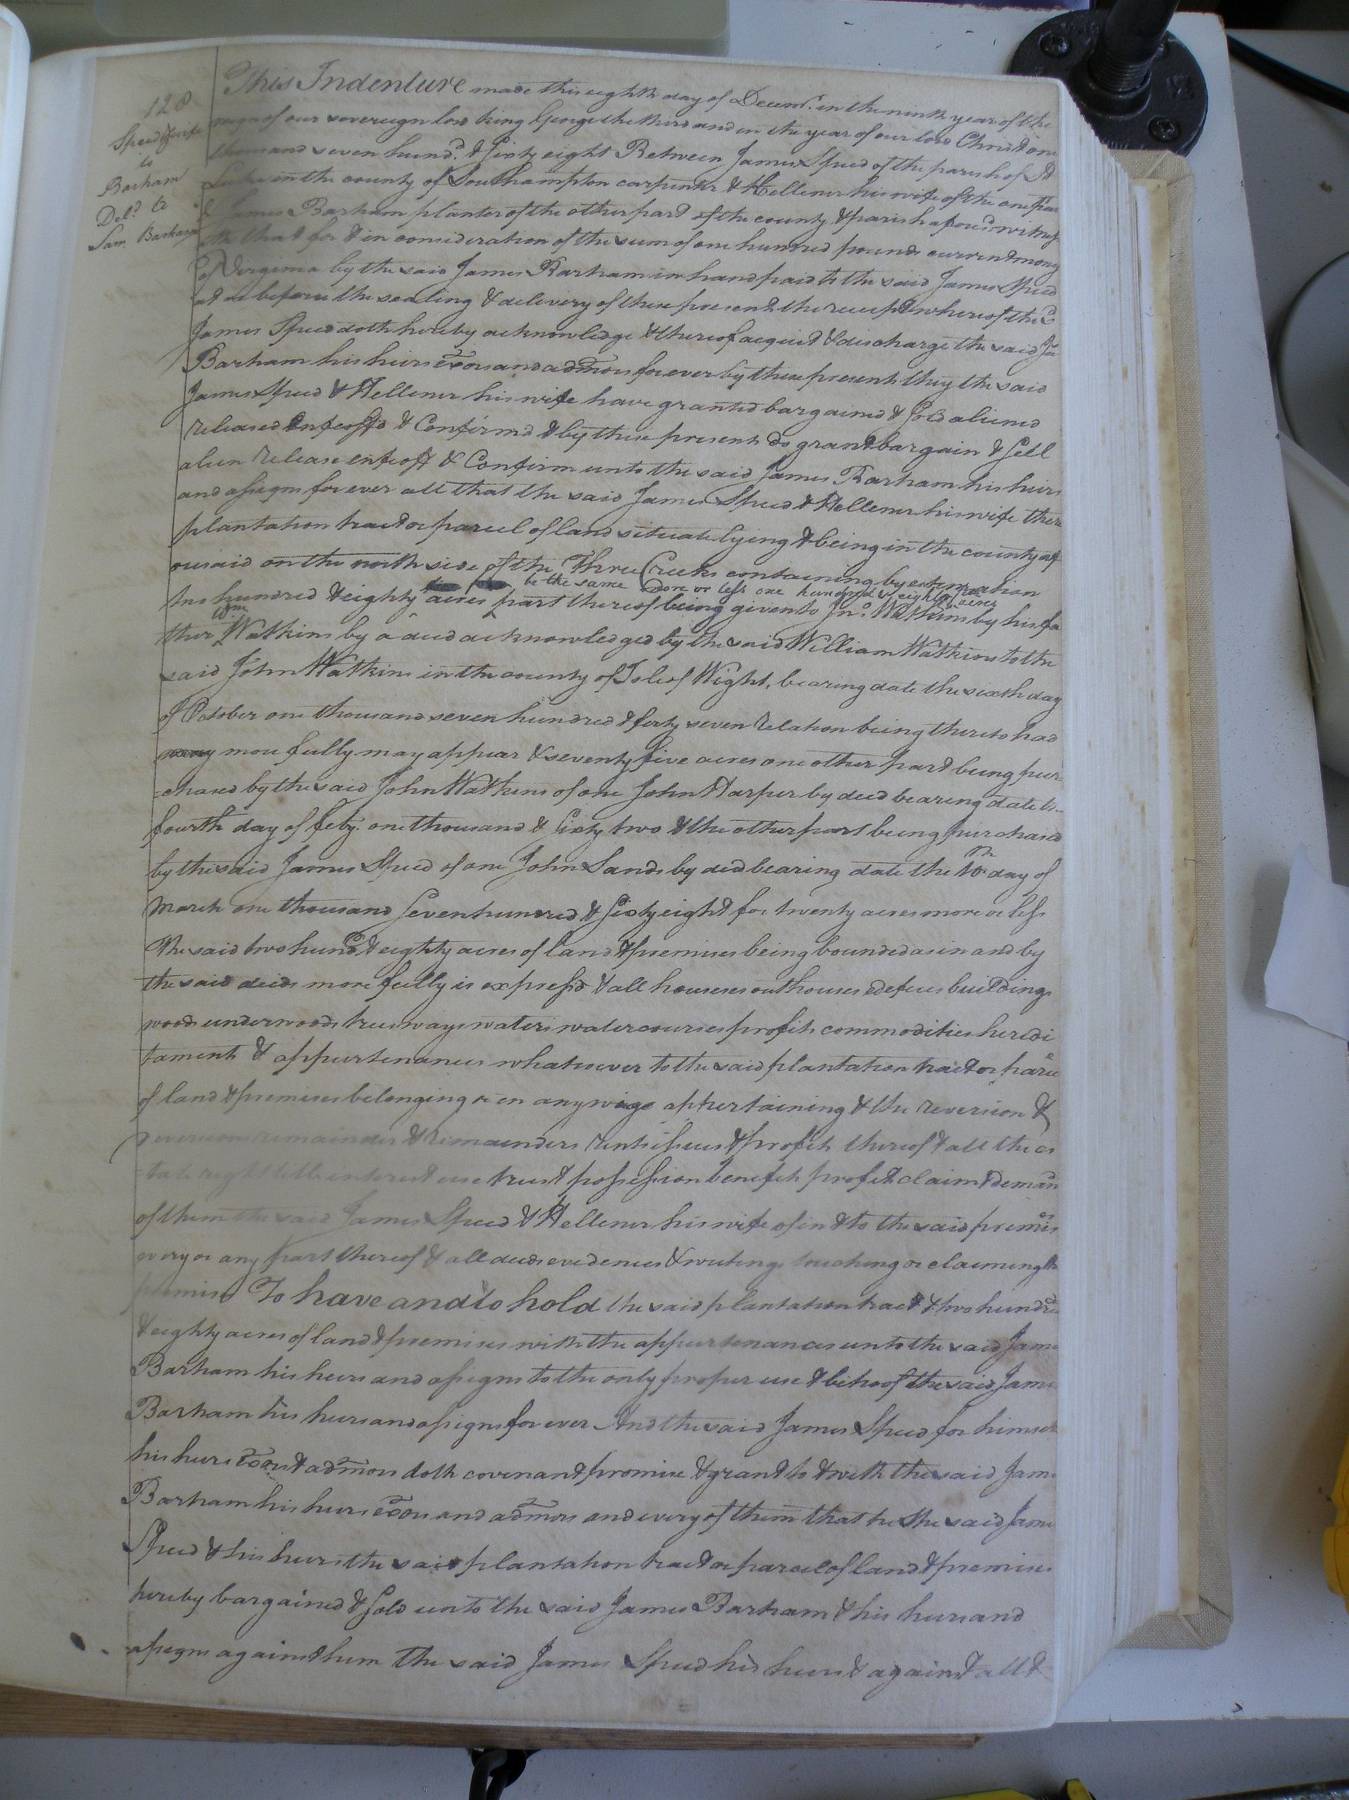 128
Speed & wife
to
Barham
Del.d to
Sam Barham
This Indenture made this eighth day of Decem.r in the ninth year of the
reign of our sovereign lord king George the third and in the year of our lord Christ one
thousand seven hund.d & Sixty eight Between James Speed of the parish of St
Luke in the county of Southampton carpenter & Hellener his wife of the one part
& James Barham planter of the other part of the county & parish afores.d witness
eth that for & in consideration of the sum of one hundred pounds current mony
of Virginia by the said James Barham in hand paid to the said James Speed
at or before the sealing & delivery of these presents the receipt whereof the s.d
James Speed doth hereby acknowledge & thereof acquit & discharge the said Ja
Barham his heirs Exors and admors for ever by these presents they the said
James Speed & Hellener his wife have granted bargained & Sold aliened
released Enfeoff'd & Confirmd & by these presents do grant bargain & Sell
alien release enfeoff & Confirm unto the said James Barham his heirs
and assigns for ever all that the said James Speed & Hellener his wife their
plantation tract or parcel of land situate lying & being in the county af
oresaid on the north side of the Three Creeks containing by estimation
be the same more or less one hundred & eighty five acres
two hundred & eighty acres part thereof being given to Jn.o Watkins by his fa
ther Wm Watkins by a deed acknowledged by the said William Watkins to the
said John Watkins in the county of Isle of Wight, bearing date the sixth day
of October one thousand seven hundred & forty seven relation being thereto had
more fully may appear & seventy five acres one other part being pur
=chased by the said John Watkins of one John Harper by deed bearing date the
fourth day of feby. one thousand & Sixty two & the other part being purchased
by the said James Speed of one John Sands by deed bearing date the 10th day of
March one thousand Seven hundred & Sixty eight for twenty acres more or less
the said two hund.d & eighty acres of land & premises being bounded as in and by
the said deeds more fully is express'd & all houses outhouses edefices buildings
woods underwoods trees ways waters watercourses profits commodities heredi
taments & appurtenances whatsoever to the said plantation tract or parcel
of land & premises belonging or in any wise appertaining & the reversion &
reversions remainder & remainders rents issues & profits thereof & all the es
tate right title interest use trust possession benefit profit claim & demand
of them the said James Speed & Hellener his wife of in & to the said premises
every or any part thereof & all deeds evidences & writings touching or claiming the
premises To have and to hold the said plantation tract & two hundred
& eighty acres of land & premises with the appurtenances unto the said James
Barham his heirs and assigns to the only proper use & behoof the said James
Barham his heirs and assigns for ever And the said James Speed for himself
his heirs Exors & admors doth covenant promise & grant to & with the said James
Barham his heirs Exors and admors and every of them that he the said James
Speed & his heirs the said plantation tract or parcel of land & premises
hereby bargained & Sold unto the said James Barham & his heirs and
assigns against him the said James Speed his heirs & against all &